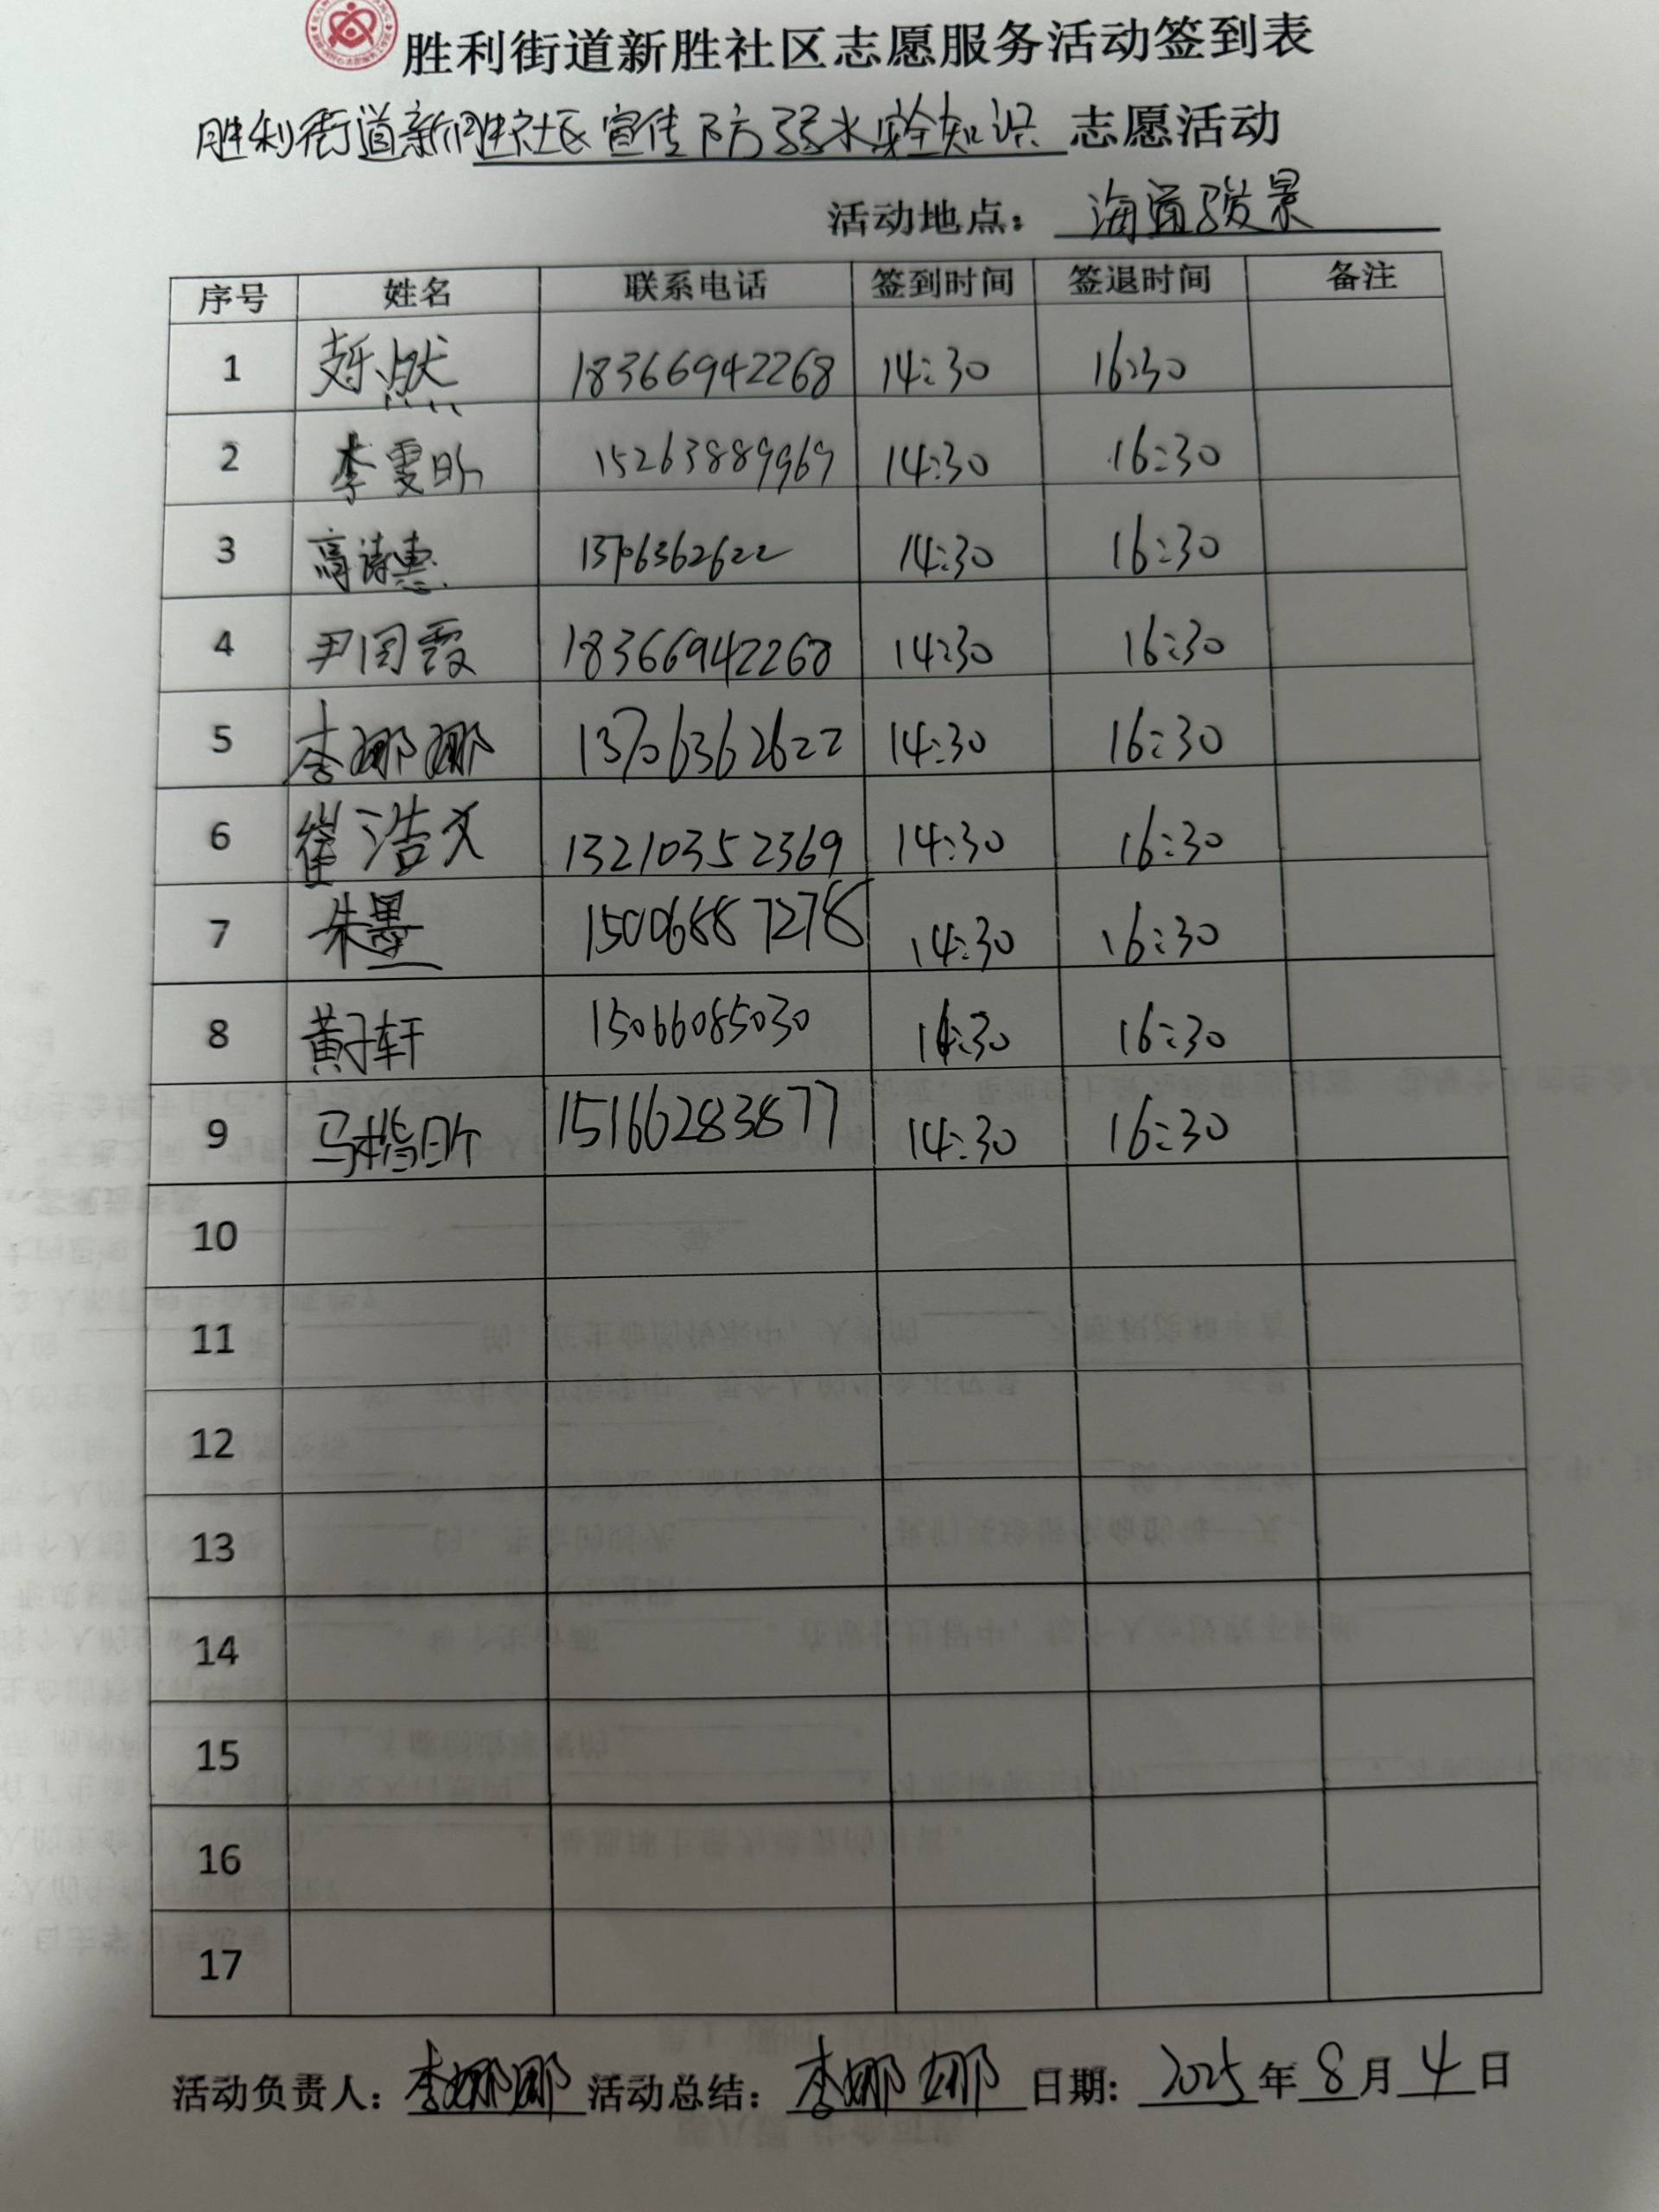 胜利街道新胜社区志愿服务活动签到表
胜利街道新胜社区宣传防溺水安全知识 志愿活动
活动地点：海通骏景
序号 姓名 联系电话 签到时间 签退时间 备注
1 然 18366942268 14:30 16:30
2 李雯昕 15263889969 14:30 16:30
3 高诗惠 13706362622 14:30 16:30
4 尹国霞 18366942268 14:30 16:30
5 李娜娜 13706362622 14:30 16:30
6 崔浩文 13210352369 14:30 16:30
7 朱墨 15006887278 14:30 16:30
8 黄子轩 15066085030 14:30 16:30
9 马楷昕 15166283877 14:30 16:30
10
11
12
13
14
15
16
17
活动负责人：李娜娜 活动总结：李娜娜 日期：2025年8月4日